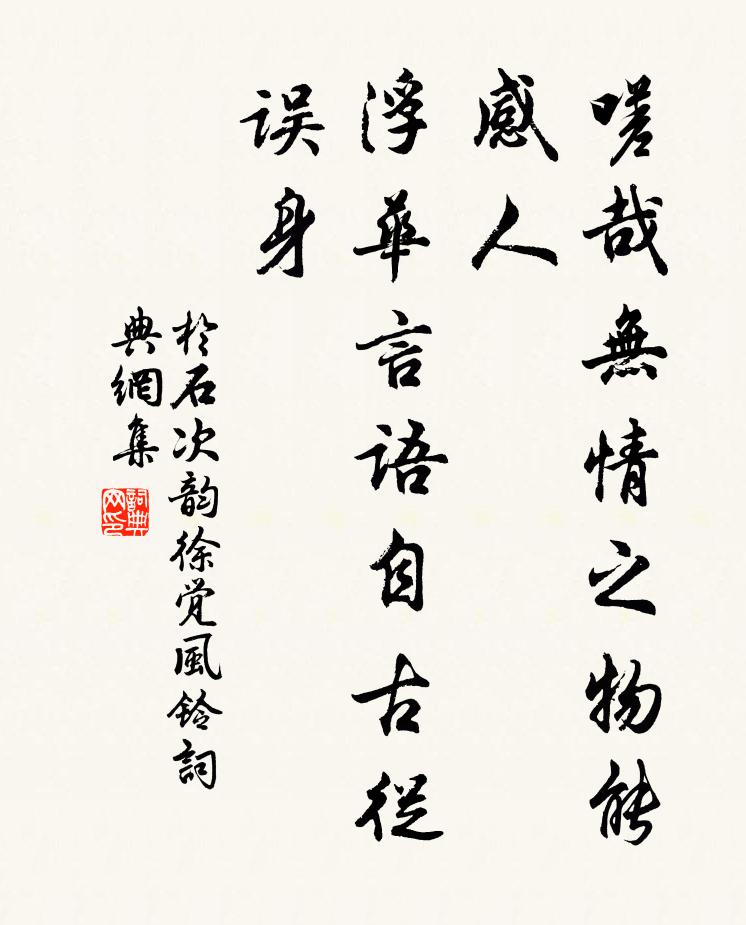 嗟哉無情之物能
感人
浮華言語自古從
误身
於石次韵徐觉風鈴詞
典網集
詞典
网印